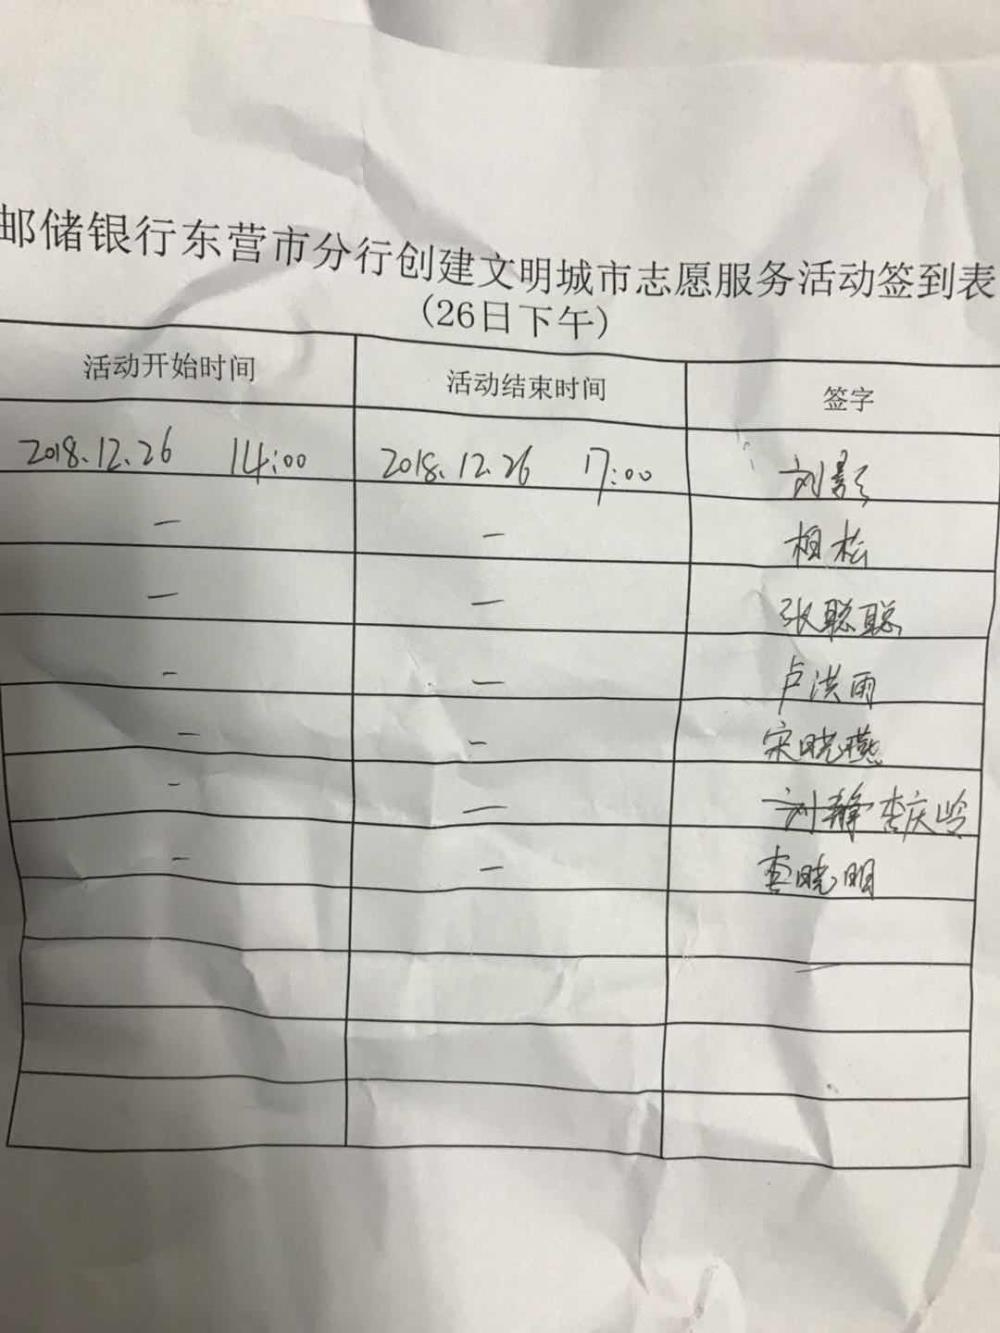 邮储银行东营市分行创建文明城市志愿服务活动签到表
(26日下午)
活动开始时间 活动结束时间 签字
2018.12.26 14:00 2018.12.26 17:00 刘影
— — 相松
— — 张聪聪
— — 卢洪雨
— — 宋晓燕
— — 刘静 李庆岭
— — 李晓明